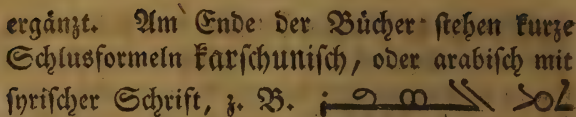 ergänzt. Am Ende der Bücher stehen kurze
Schlusformeln karschunisch, oder arabisch mit
syrischer Schrift, z. B. ܬܡ ܐܠܣܦܪ